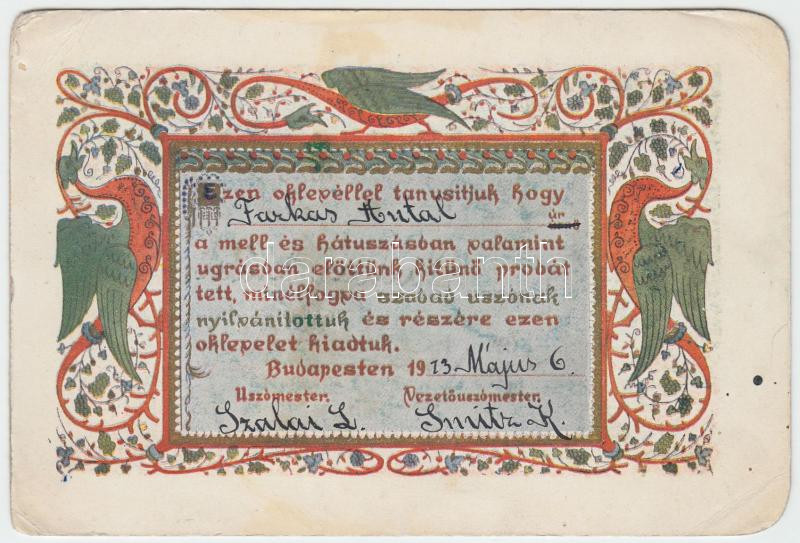 Ezen oklevéllel tanusitjuk hogy
Farkas Antal úr
a mell és hátuszásban valamint
ugrásban előttünk kitünő próbát
tett, minélfogva szabad uszónak
nyilvánitottuk és részére ezen
oklevelet kiadtuk.
Budapesten 1923 Május 6.
Uszómester. Vezetőuszómester.
Szalai L. Smitz K.
darabanth